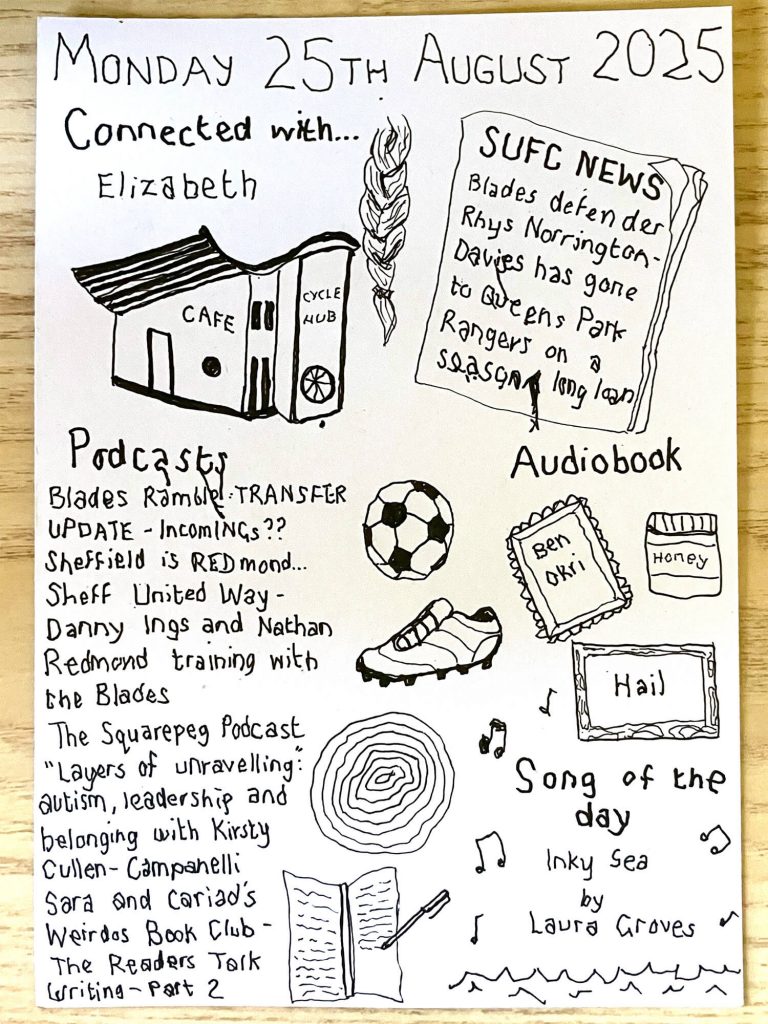 MONDAY 25TH AUGUST 2025
Connected with...
Elizabeth
CAFE
CYCLE
HUB
SUFC NEWS
Blades defender
Rhys Norrington-
Davies has gone
to Queens Park
Rangers on a
season long loan
Podcasts
Blades Ramble: TRANSFER
UPDATE - IncomINGs??
Sheffield is REDmond...
Sheff United Way -
Danny Ings and Nathan
Redmond training with
the Blades
The Squarepeg Podcast
"Layers of unravelling":
autism, leadership and
belonging with Kirsty
Cullen-Campanelli
Sara and Cariad's
Weirdos Book Club -
The Readers Talk
Writing - Part 2
Audiobook
Ben
Okri
Honey
Hail
Song of the
day
Inky Sea
by
Laura Groves